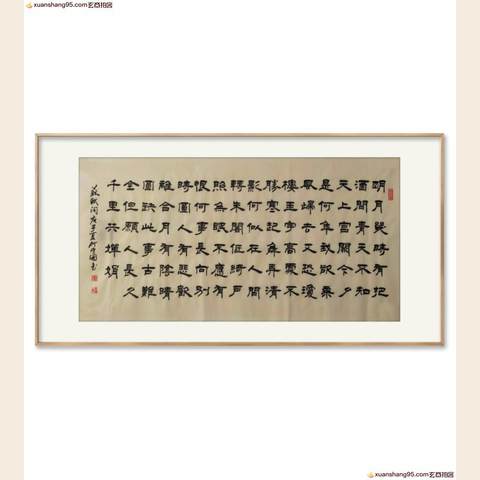 xuanshang95.com玄商拍图
明月幾時有把
酒問青天不知
天上宮闕今夕
是何年我欲乘
風歸去又恐瓊
樓玉宇高處不
勝寒起舞弄清
影何似在人間
轉朱閣低綺戶
照無眠不應有
恨何事長向別
時圓人有悲歡
離合月有陰晴
圓缺此事古難
全但願人長久
千里共嬋娟
蘇軾詞庚子夏
xuanshang95.com玄商拍图